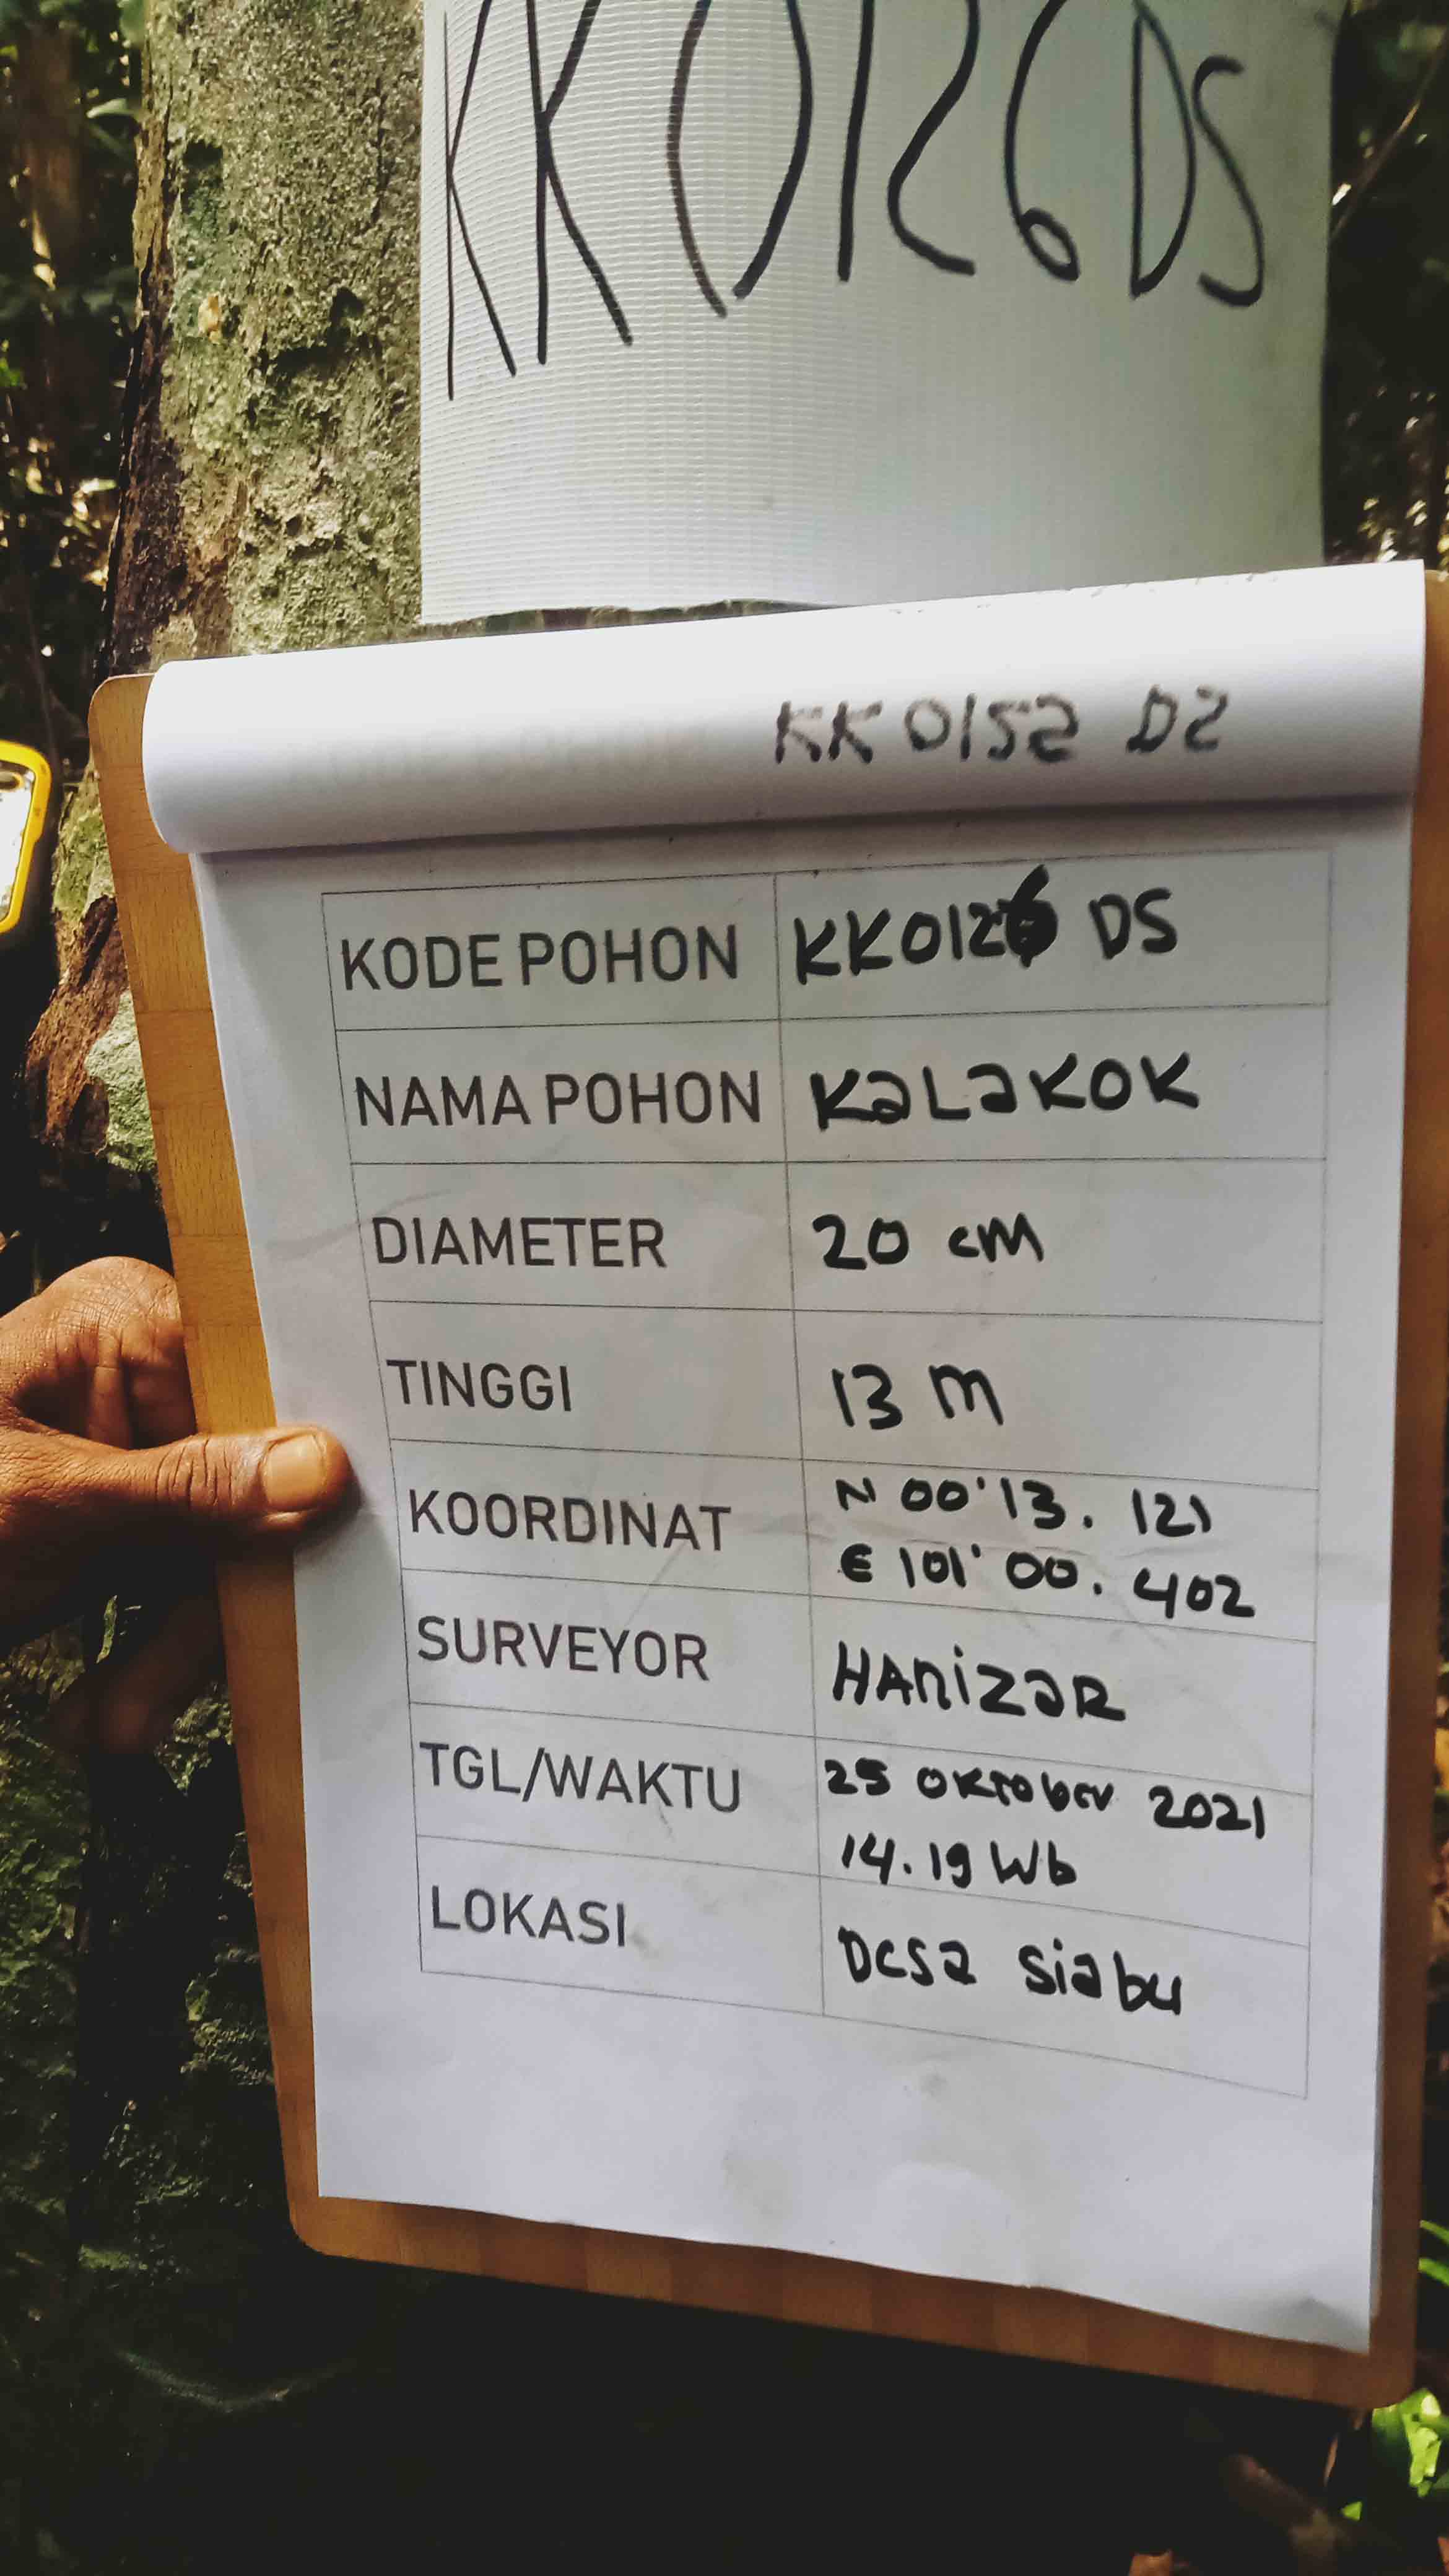 KK0126DS
KODE POHON KK0126 DS
NAMA POHON KaLaKOK
DIAMETER 20 cm
TINGGI 13 m
KOORDINAT N 00'13. 121
E 101' 00. 402
SURVEYOR HAnizaR
TGL/WAKTU 25 Oktober 2021
14.19 Wb
LOKASI Desa Siabu